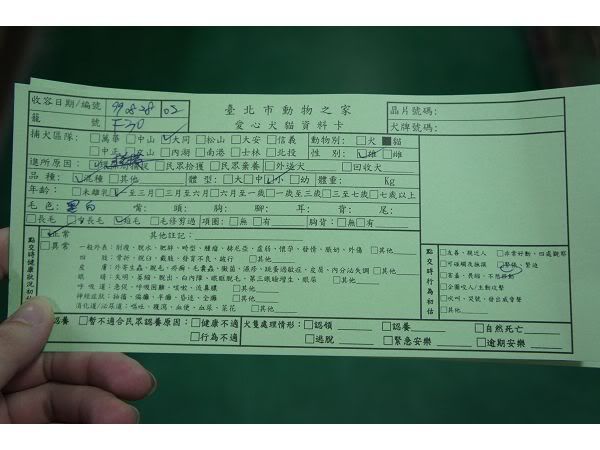 收容日期/編號 99.08.28 02
臺北市動物之家
晶片號碼:
籠 號
愛心犬貓資料卡
犬牌號碼:
捕犬區隊: □萬華 □中山 ☑大同 □松山 □大安 □信義 動物別: □犬 ■貓
□內湖 □南港 □士林 □北投 性 別: ☑雄 □雌
進所原因: □民眾拾獲 □民眾棄養 □外送犬 □回收犬
品 種: ☑混種 □其他 體 型: □大 □中 ☑小 □幼 體重: Kg
年齡: □未離乳 ☑至三月 □三月至六月 □六月至一歲 □一歲至三歲 □三至七歲 □七歲以上
毛 色: 黑白 嘴: 頭: 胸: 腳: 耳: 背: 尾:
□長毛 □中長毛 ☑短毛 □毛修剪過 項圈: □無 □有 胸背: □無 □有
點交時健康狀況初估
正常 其他註記:
□異常 一般外表: 削瘦、脫水、肥胖、畸型、腫瘤、赫尼亞、虛弱、懷孕、發情、脹奶、外傷 □其他
四 肢: 骨折、脫臼、截肢、發育不良、跛行 □其他
皮 膚: 外寄生蟲、脫毛、疥癬、毛囊蟲、黴菌、濕疹、跳蚤過敏症、皮屑、內分泌失調 □其他
眼 睛: 失明、萎縮、脫出、白內障、眼瞼脫毛、第三眼瞼增生、眼屎 □其他
呼 吸 道: 急促、呼吸困難、咳嗽、流鼻膿 □其他
神經症狀: 抽搐、偏癱、半癱、昏迷、全癱 □其他
消化道/泌尿道: 嘔吐、腹瀉、血便、血尿、菜花 □其他
點交時行為初估
□友善、親近人 □非常好動、四處觀察
□可碰觸及撫摸 ☑緊張、緊迫
□害羞、畏縮、不想移動
□企圖咬人/主動攻擊
□吹叫、哭號、發出威脅聲
□其他
認養 □暫不適合民眾認養原因: □健康不適 □行為不適
犬隻處理情形: □認領 □認養 □自然死亡
□逃脫 □緊急安樂 □逾期安樂